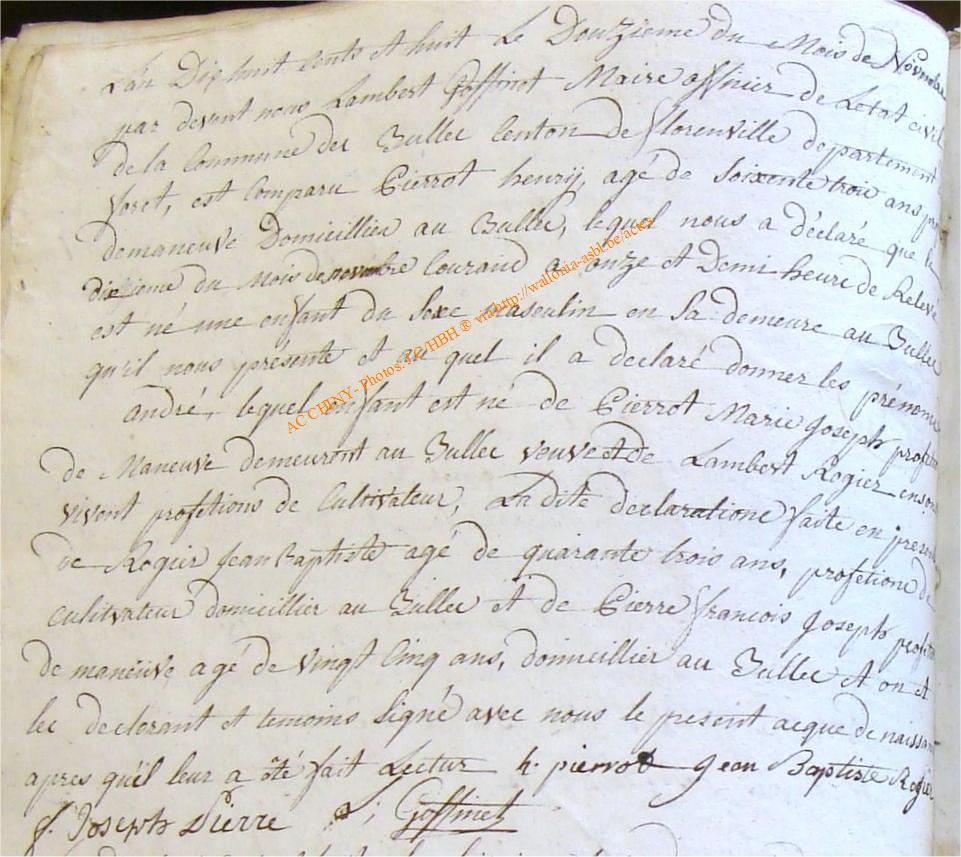 L'an Dix huit cents et huit Le Douzieme du Mois de Novembre
par devent nous Lambert Goffinet Maire officier de Letat civil
de la Commune du Bullec Centon de florenville departement
foret, est Comparu Pierrot henry, agé de Soixente trois ans pro
demaneuve Domicillier au Bullec, lequel nous a déclaré que le
dixieme du Mois de novembre Courand a onze et Demi heur de Relevé
est né une enfant du Sexe Masculin en Sa demeure au Bullec
qu'il nous presente et au quel il a declaré donner les prénoms
andré, lequel enfant est né de Pierrot Marie joseph profetion
de Maneuve demeuront au Bullec veuve et de Lambert Rogier enson
vivent profetions de Cultivateur, La dite declaratione faite en presen
de Rogier Jean Baptiste agé de quarante trois ans, profetione de
cultivateur domicillier au Bullec et de Pierre françois joseph profetion
de maneuve agé de vingt Cinq ans, domicillier au Bullec et on et
lec declorant et temoins Signé avec nous le present acque de naissan
apres qu'il leur a ôté fait Lectur h. pierrot Jean Baptiste Rogier
f. Joseph Pierre Goffinet
ACCHINY - Photos J.C/HBH ® via http://wallonia-asbl.be/actes